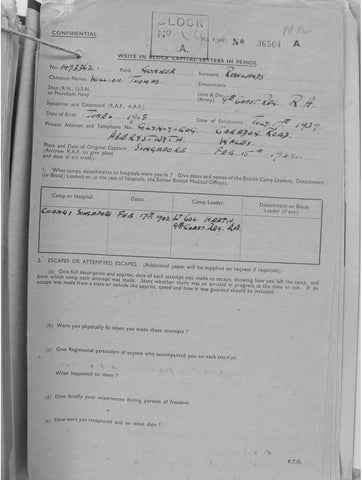 CONFIDENTIAL
BLOCK
No
.A.
No 36564 A
WRITE IN BLOCK CAPITAL LETTERS IN PENCIL
No. Rank GUNNER Surname ROWLANDS
Christian Names WILLIAM THOMAS Decorations
Ship (R.N., U.S.N. or Merchant Navy) Unit & Div. (Army) 9th COAST. REG. R.A.
Squadron and Command (R.A.F., A.A.F.)
Date of Birth Date of Enlistment 1939
Private Address and Telephone No. CARADOG ROAD.
ABERYSTWYTH. WALES.
Place and Date of Original Capture SINGAPORE FEB. 15th 1942.
(Aircrew R.A.F. to give place
and date of a/c crash).
1. What camps, detachments or hospitals were you in? Give dates and names of the British Camp Leaders, Detachment
(or Block) Leaders or, in the case of hospitals, the Senior British Medical Officers.
Camp or Hospital. Dates. Camp Leader. Detachment or Block Leader (if any).
CHANGI SINGAPORE FEB 17th 1942 Lt COL HEATH,
9th COAST. REG. RA.
2. ESCAPES OR ATTEMPTED ESCAPES. (Additional paper will be supplied on request if required).
(a) Give full description and approx. date of each attempt you made to escape, showing how you left the camp, and
from which camp each attempt was made. State whether there was an air-raid in progress at the time or not. If an
escape was made from a train or vehicle the approx. speed and how it was guarded should be included.
(b) Were you physically fit when you made these attempts?
(c) Give Regimental particulars of anyone who accompanied you on each attempt.
What happened to them?
(d) Give briefly your experiences during periods of freedom.
(e) How were you recaptured and on what date?
P.T.O.